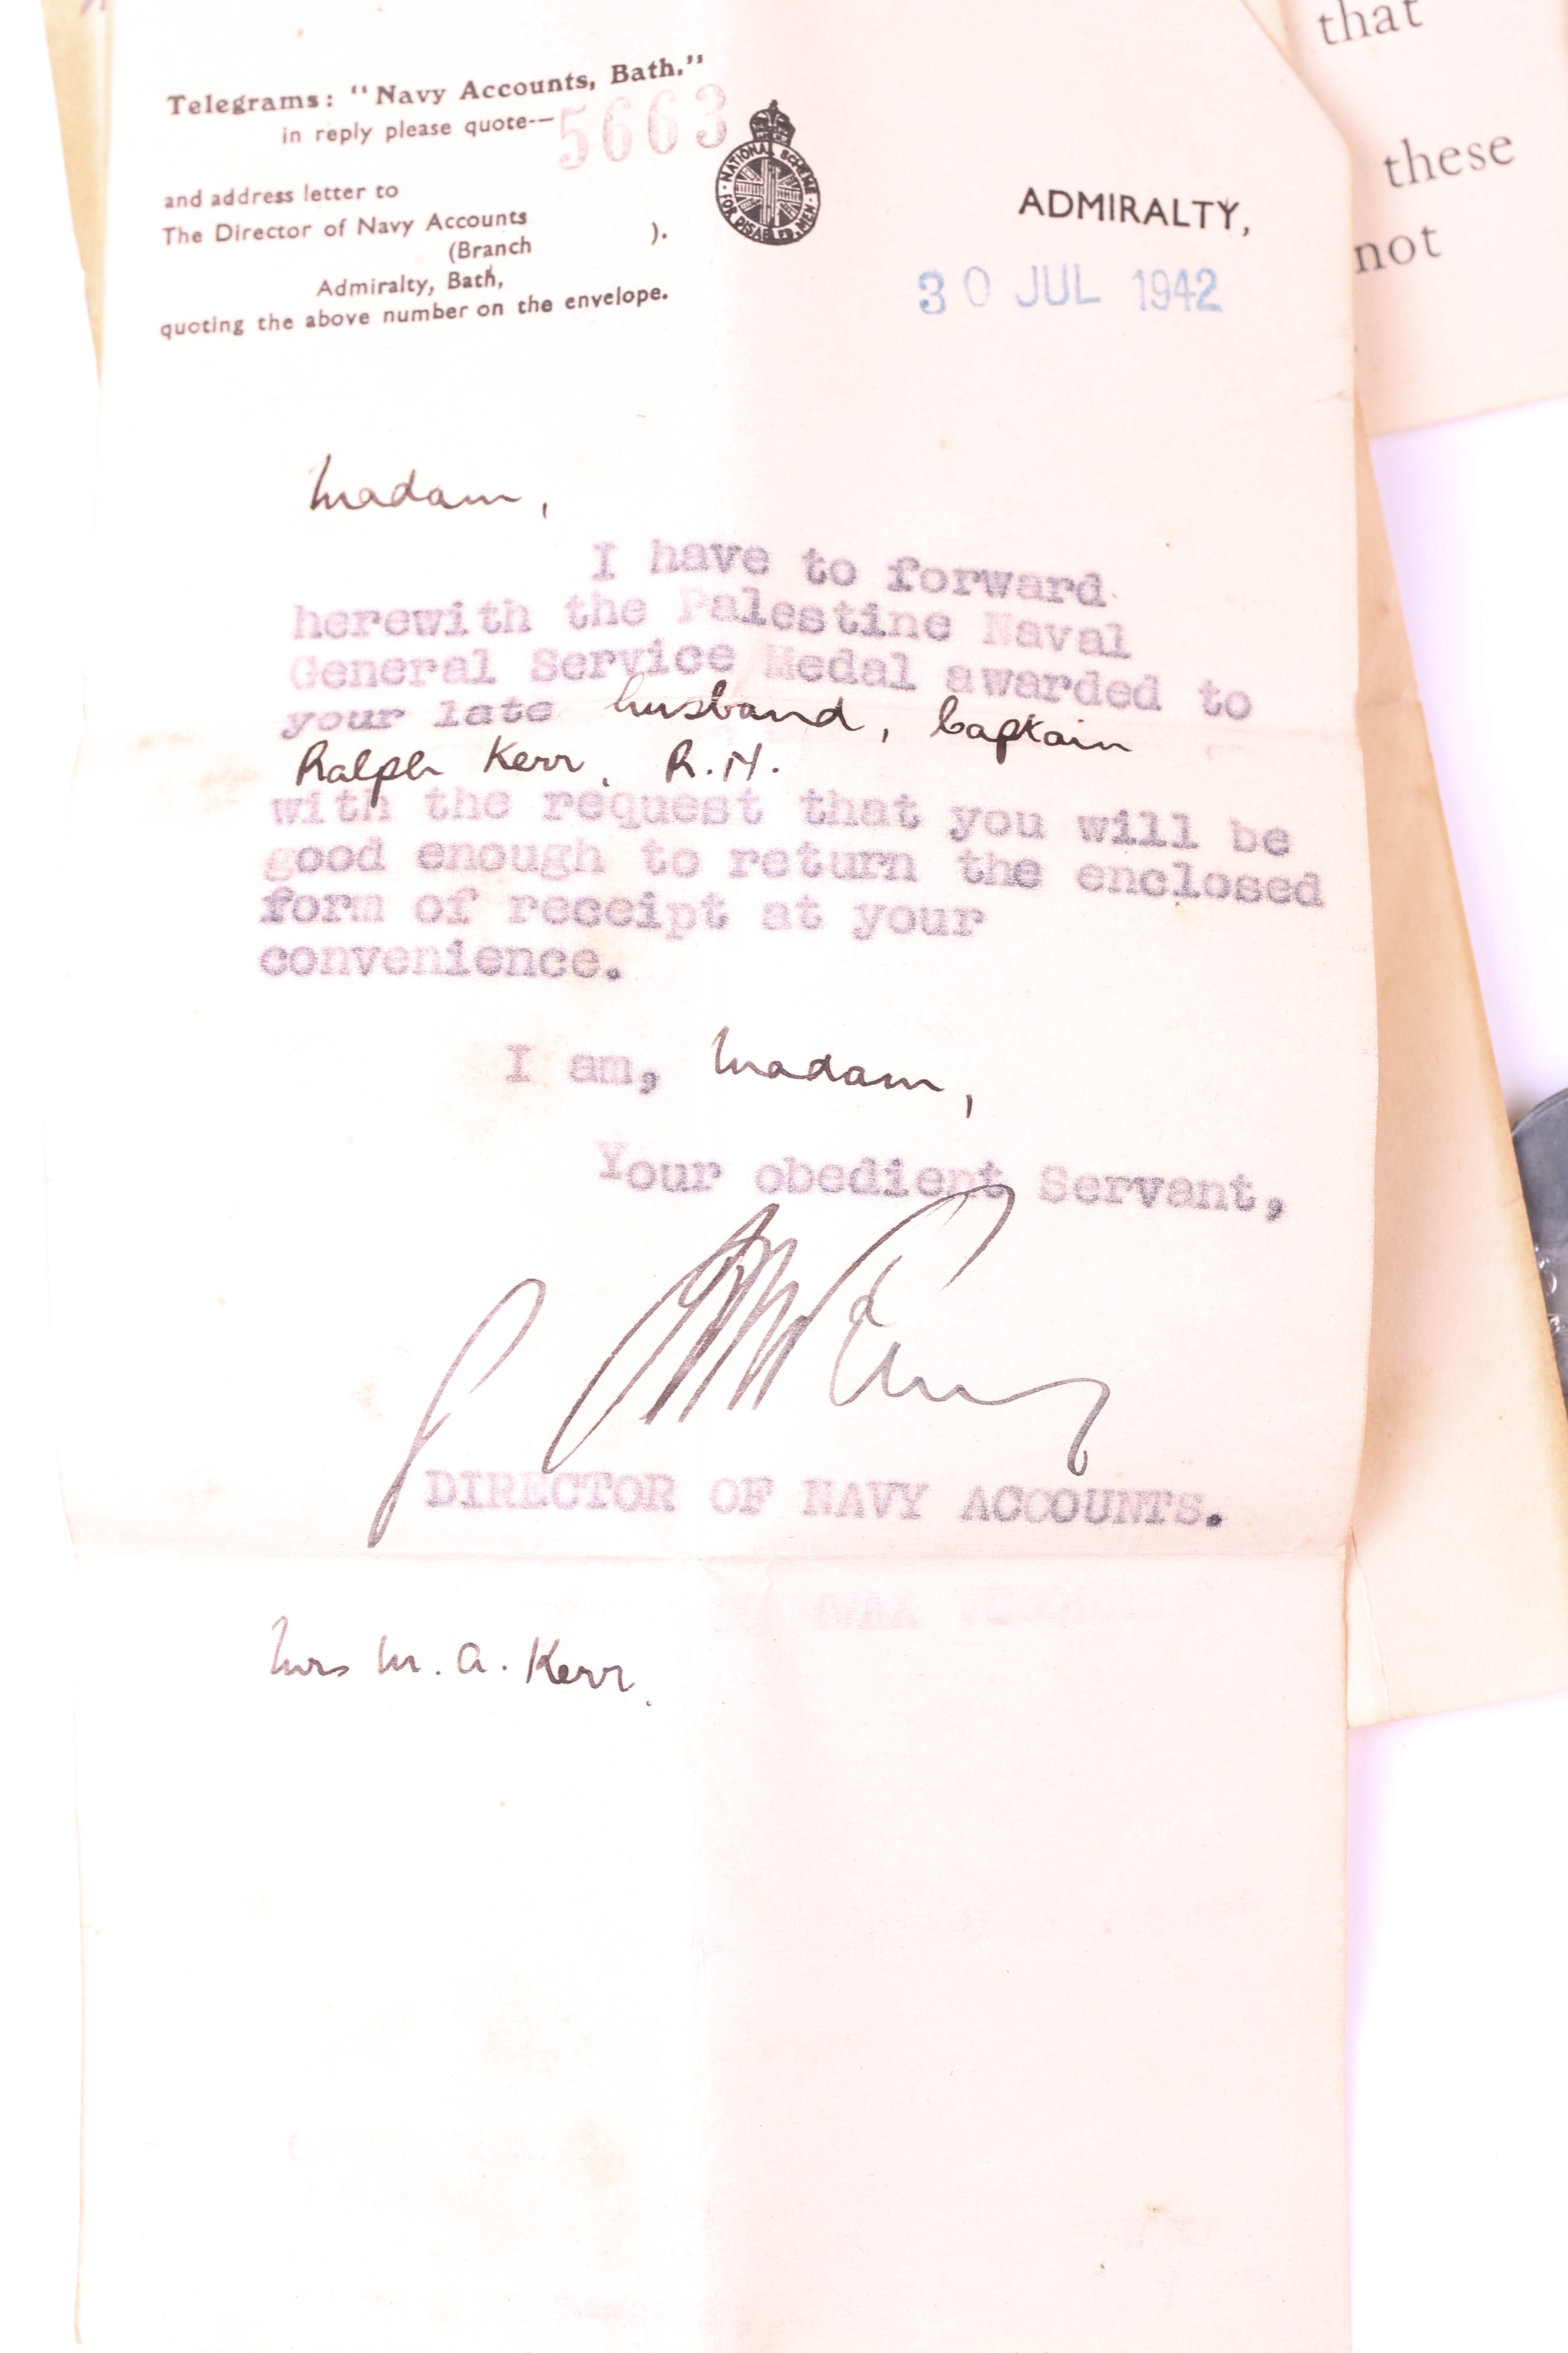 Telegrams: "Navy Accounts, Bath."
in reply please quote--5663
and address letter to
The Director of Navy Accounts
(Branch ).
Admiralty, Bath,
quoting the above number on the envelope.
NATIONAL SCHEME FOR DISABLED MEN
ADMIRALTY,
30 JUL 1942
Madam,
I have to forward
herewith the Palestine Naval
General Service Medal awarded to
your late husband, Captain
Ralph Kerr, R.N.
with the request that you will be
good enough to return the enclosed
form of receipt at your
convenience.
I am, Madam,
Your obedient Servant,
DIRECTOR OF NAVY ACCOUNTS.
Mrs M. A. Kerr.
that
these
not